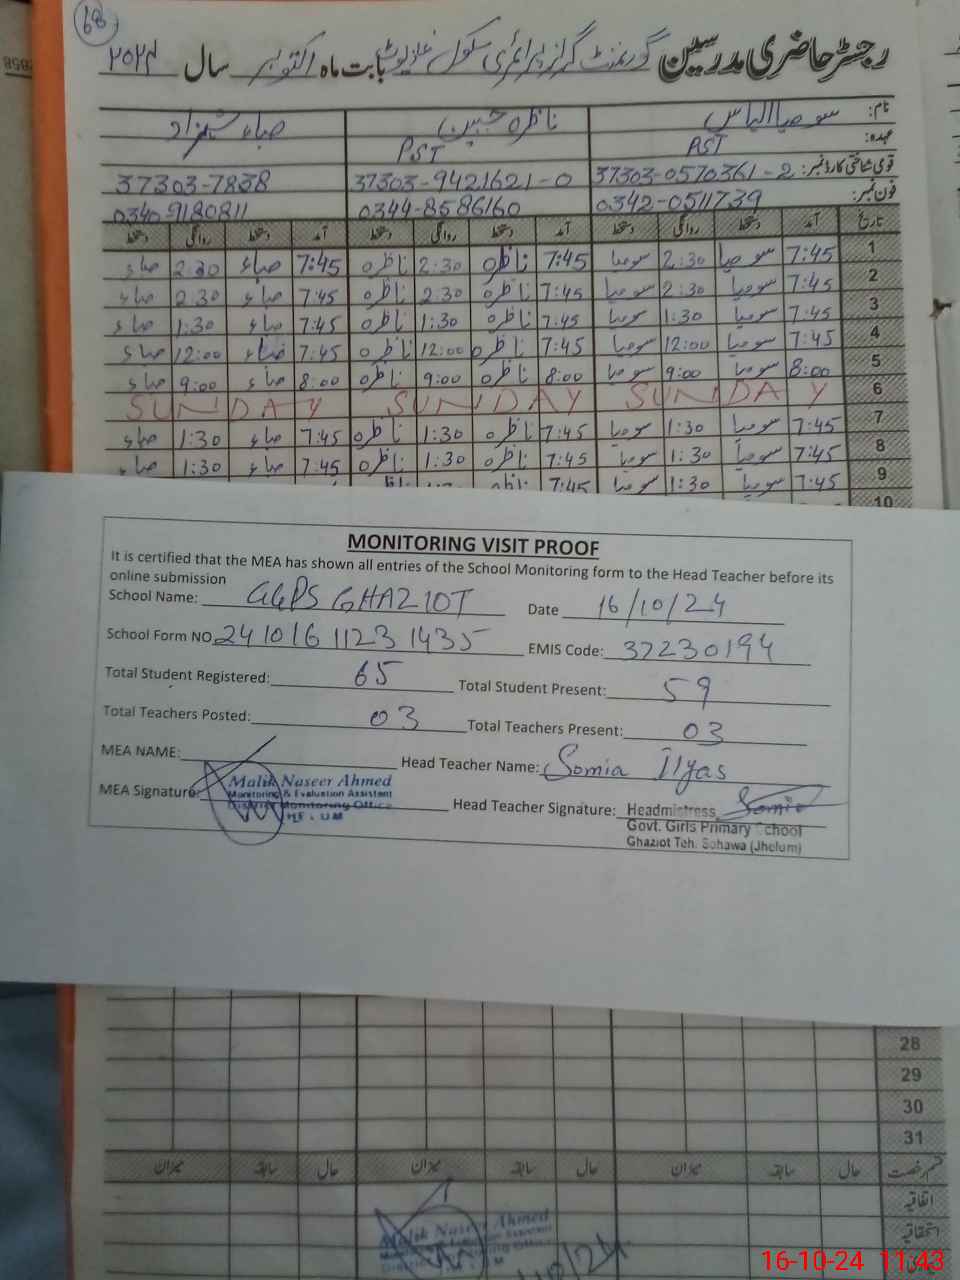 68
رجسٹر حاضری مدرسین گورنمنٹ گرلز پرائمری سکول غازیوٹ بابت ماہ اکتوبر سال ۲۰۲۴
نام: سومیا الیاس ناظرہ جبین صباء شہزاد
عہدہ: PST PST
قومی شناختی کارڈ نمبر: 37303-0570361-2 37303-9421621-0 37303-7838
فون نمبر: 0342-0511739 0344-8586160 0340-9180811
تاریخ آمد دستخط روانگی دستخط آمد دستخط روانگی دستخط آمد دستخط روانگی دستخط
1 7:45 سومیا 2:30 سومیا 7:45 ناظرہ 2:30 ناظرہ 7:45 صباء 2:30 صباء
2 7:45 سومیا 2:30 سومیا 7:45 ناظرہ 2:30 ناظرہ 7:45 صباء 2:30 صباء
3 7:45 سومیا 1:30 سومیا 7:45 ناظرہ 1:30 ناظرہ 7:45 صباء 1:30 صباء
4 7:45 سومیا 12:00 سومیا 7:45 ناظرہ 12:00 ناظرہ 7:45 صباء 12:00 صباء
5 8:00 سومیا 9:00 سومیا 8:00 ناظرہ 9:00 ناظرہ 8:00 صباء 9:00 صباء
6 SUNDAY SUNDAY SUNDAY
7 7:45 سومیا 1:30 سومیا 7:45 ناظرہ 1:30 ناظرہ 7:45 صباء 1:30 صباء
8 7:45 سومیا 1:30 سومیا 7:45 ناظرہ 1:30 ناظرہ 7:45 صباء 1:30 صباء
9 7:45 سومیا 1:30 سومیا 7:45
10
MONITORING VISIT PROOF
It is certified that the MEA has shown all entries of the School Monitoring form to the Head Teacher before its
online submission
School Name: GGPS GHAZIOT Date 16/10/24
School Form NO. 241016 1123 1435 EMIS Code: 37230194
Total Student Registered: 65 Total Student Present: 59
Total Teachers Posted: 03 Total Teachers Present: 03
MEA NAME: Head Teacher Name: Somia Ilyas
Malik Naseer Ahmed
Monitoring & Evaluation Assistant
District Monitoring Office
MEA Signature: Head Teacher Signature: Headmistress Somia
Govt. Girls Primary School
Ghaziot Teh. Sohawa (Jhelum)
28
29
30
31
قسم رخصت حال سابقہ میزان حال سابقہ میزان حال سابقہ میزان
اتفاقیہ
استحقاقیہ
Malik Naseer Ahmed
16-10-24 11:43